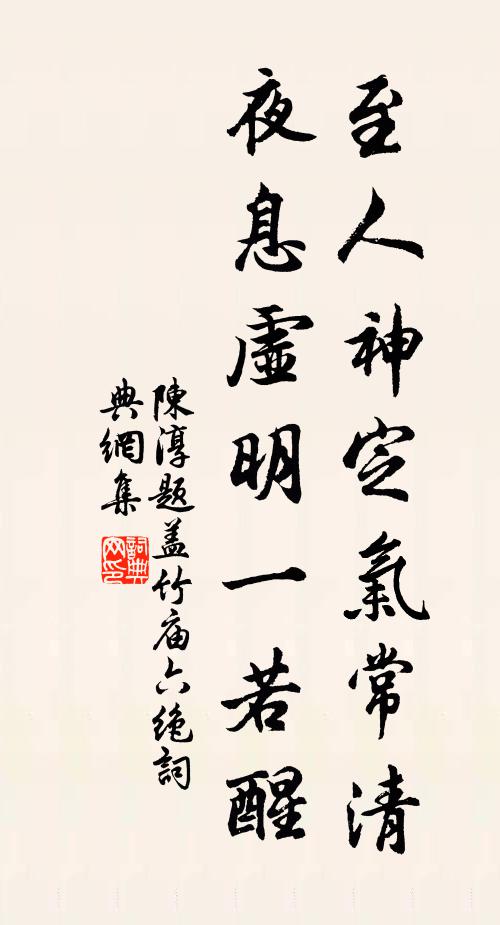 至人神定氣常清
夜息虛明一若醒
陳淳題蓋竹庙六绝詞
典網集
詞典
网印